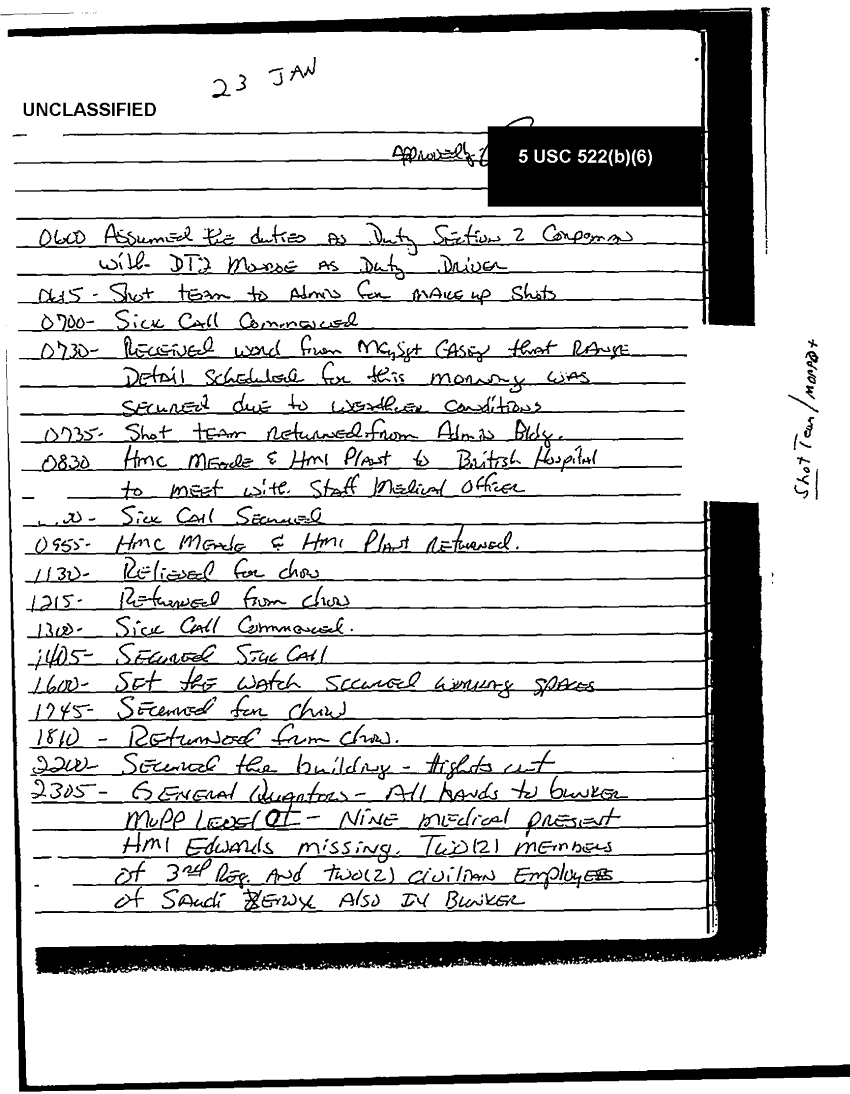 23 JAN
UNCLASSIFIED
Approved by
5 USC 522(b)(6)
0600 Assumed the duties as Duty Section 2 Corpsman
with DT2 as Duty Driver
0615- Shot team to Admin for make up shots
0700- Sick Call Commenced
0730- Received word from MGySgt Casey that Range
Detail scheduled for this morning was
secured due to weather conditions
0735- Shot team returned from Admin Bldg.
0830 HMC Meade & HM1 Plant to British Hospital
to meet with Staff Medical Officer
- Sick Call Secured
0955- HMC Meade & HM1 Plant Returned.
1130- Relieved for chow
1215- Returned from chow
1300- Sick Call Commenced.
1405- Secured Sick Call
1600- Set the watch secured working spaces
1745- Secured for chow
1810 - Returned from chow.
2200- Secured the building -
2305- General Quarters - All hands to bunker
MOPP Level - Nine medical present
HM1 Edwards missing. Two(2) members
of 3rd Reg. and two(2) civilian Employees
of Saudi Also IN Bunker
Shot Team/